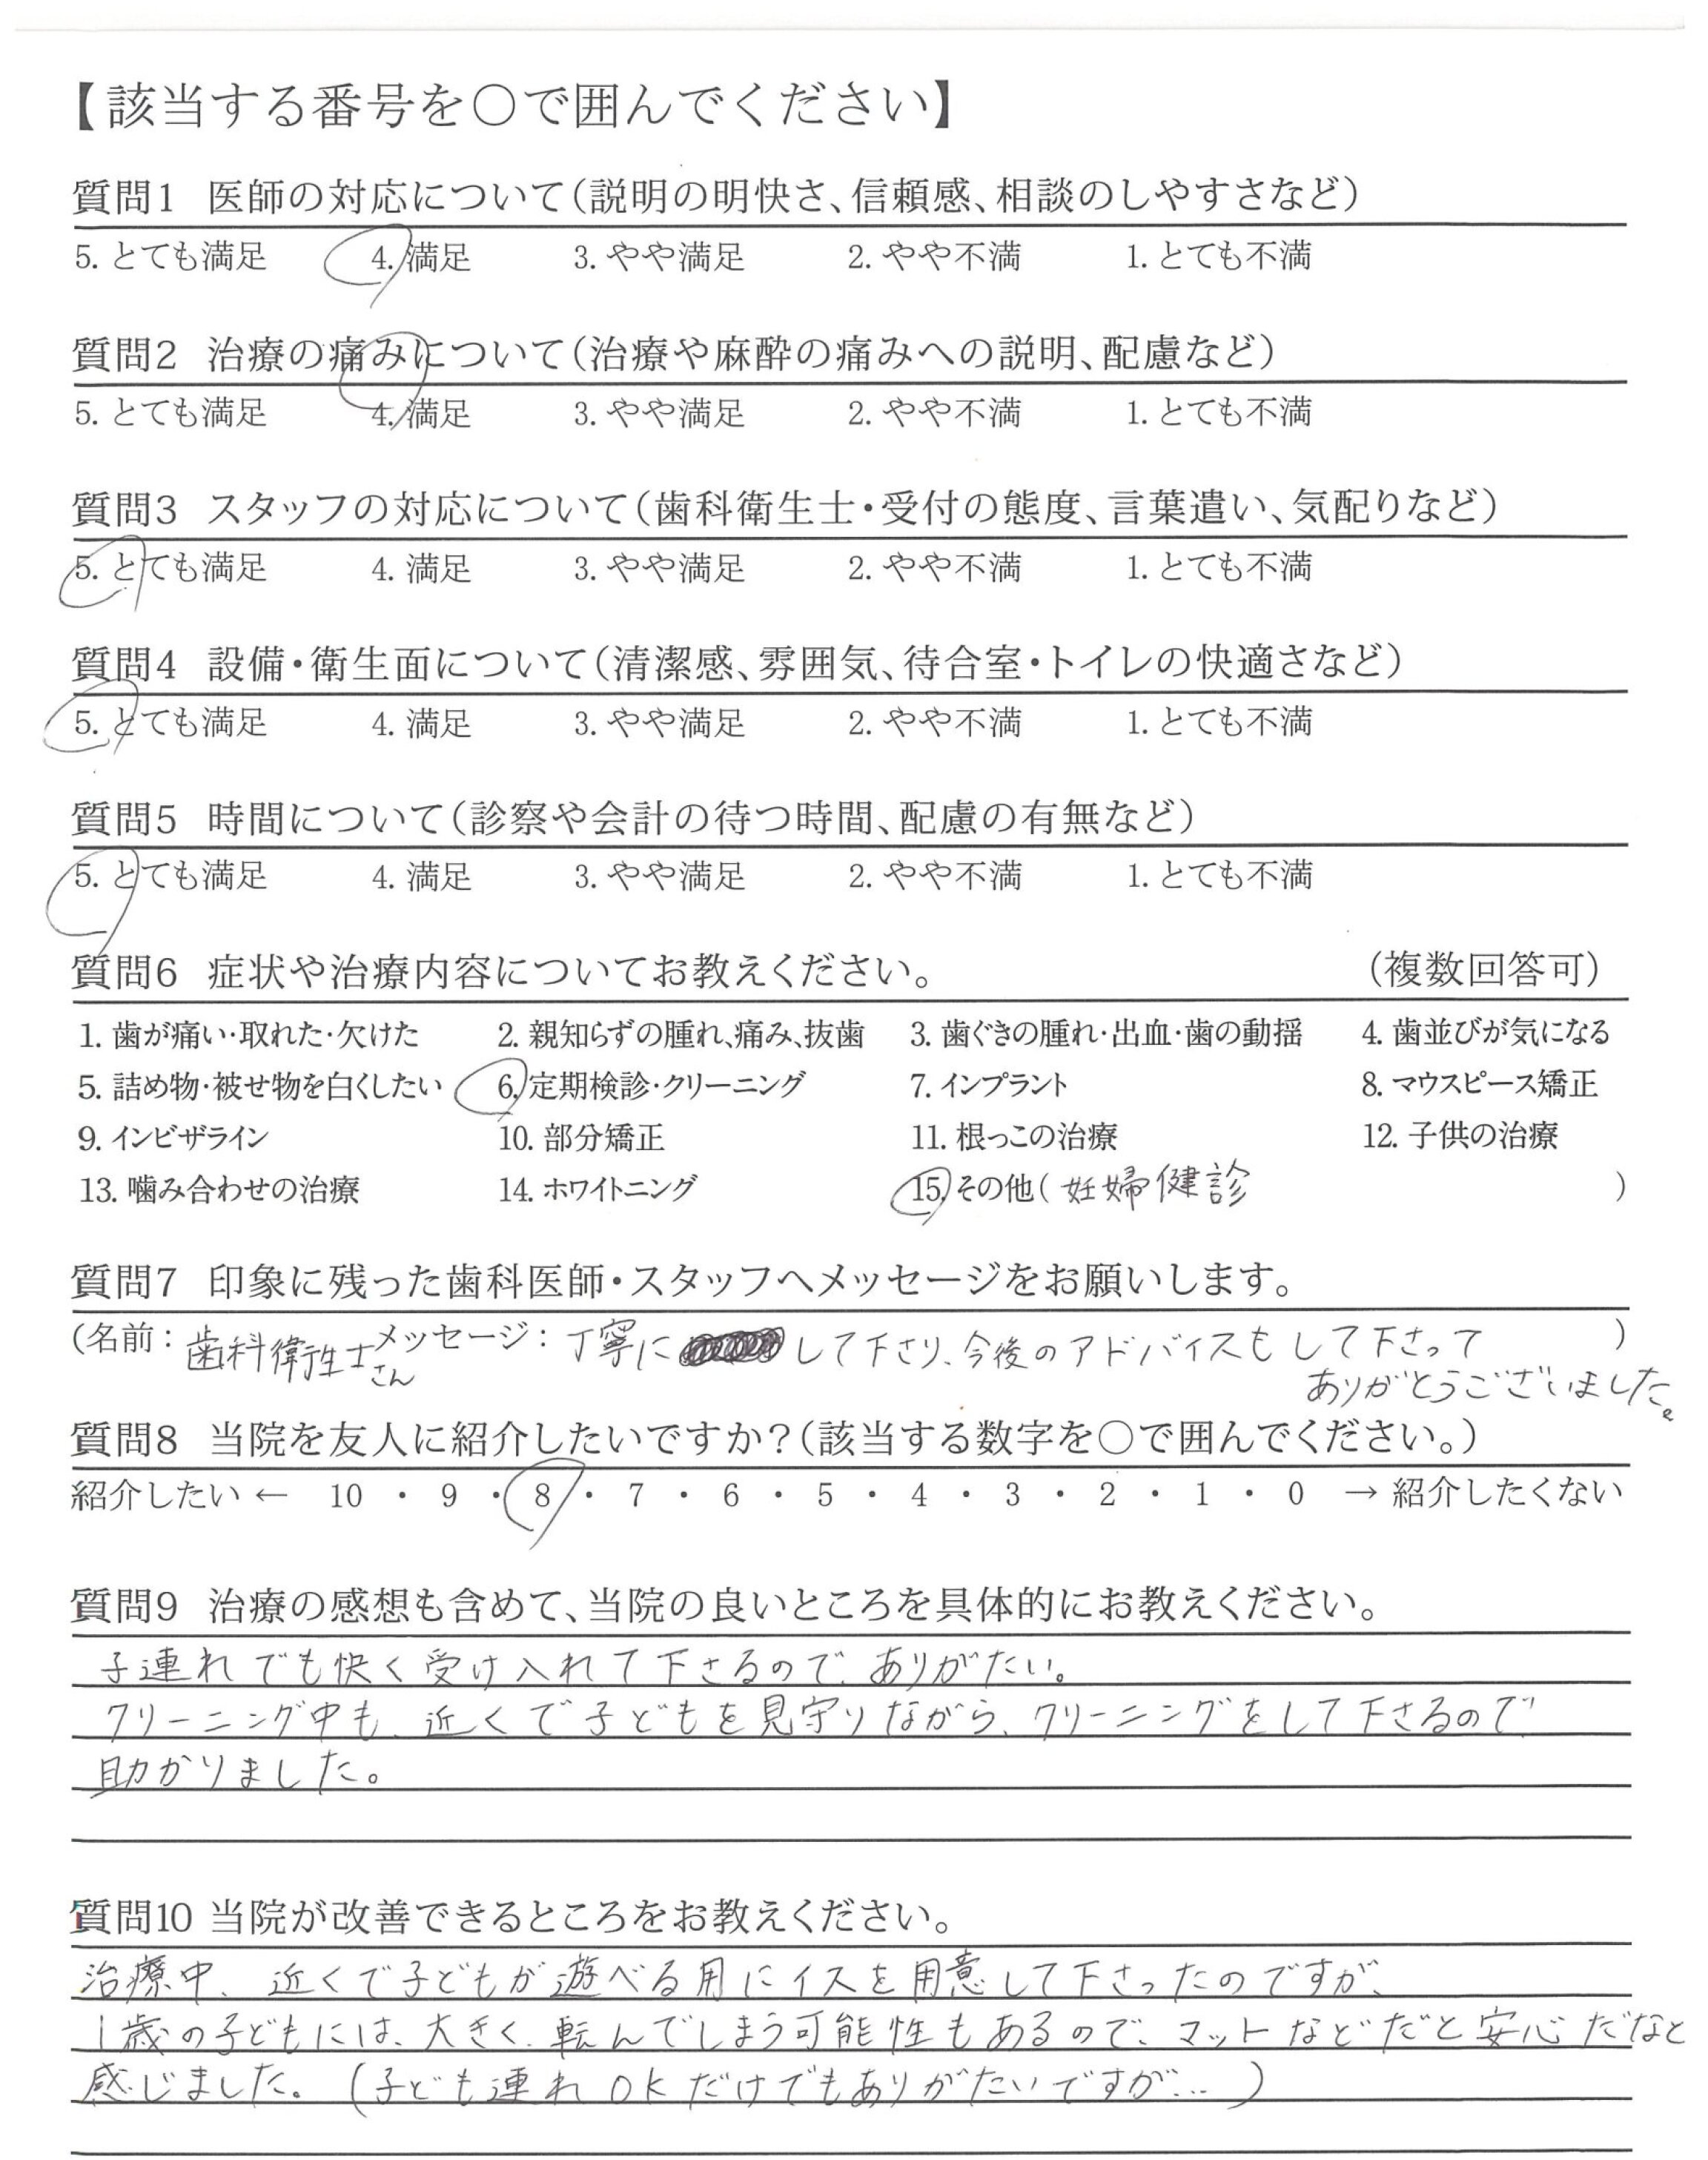 【該当する番号を〇で囲んでください】
質問1 医師の対応について(説明の明快さ、信頼感、相談のしやすさなど)
5. とても満足 4. 満足 3. やや満足 2. やや不満 1. とても不満
質問2 治療の痛みについて(治療や麻酔の痛みへの説明、配慮など)
5. とても満足 4. 満足 3. やや満足 2. やや不満 1. とても不満
質問3 スタッフの対応について(歯科衛生士・受付の態度、言葉遣い、気配りなど)
5. とても満足 4. 満足 3. やや満足 2. やや不満 1. とても不満
質問4 設備・衛生面について(清潔感、雰囲気、待合室・トイレの快適さなど)
5. とても満足 4. 満足 3. やや満足 2. やや不満 1. とても不満
質問5 時間について(診察や会計の待つ時間、配慮の有無など)
5. とても満足 4. 満足 3. やや満足 2. やや不満 1. とても不満
質問6 症状や治療内容についてお教えください。 (複数回答可)
1. 歯が痛い・取れた・欠けた 2. 親知らずの腫れ、痛み、抜歯 3. 歯ぐきの腫れ・出血・歯の動揺 4. 歯並びが気になる
5. 詰め物・被せ物を白くしたい 6. 定期検診・クリーニング 7. インプラント 8. マウスピース矯正
9. インビザライン 10. 部分矯正 11. 根っこの治療 12. 子供の治療
13. 噛み合わせの治療 14. ホワイトニング 15. その他( 妊婦健診 )
質問7 印象に残った歯科医師・スタッフへメッセージをお願いします。
(名前: 歯科衛生士さん メッセージ: 丁寧に して下さり、今後のアドバイスもして下さって )
ありがとうございました。
質問8 当院を友人に紹介したいですか?(該当する数字を〇で囲んでください。)
紹介したい ← 10 ・ 9 ・ 8 ・ 7 ・ 6 ・ 5 ・ 4 ・ 3 ・ 2 ・ 1 ・ 0 → 紹介したくない
質問9 治療の感想も含めて、当院の良いところを具体的にお教えください。
子連れでも快く受け入れて下さるので、ありがたい。
クリーニング中も、近くで子どもを見守りながら、クリーニングをして下さるので
助かりました。
質問10 当院が改善できるところをお教えください。
治療中、近くで子どもが遊べる用にイスを用意して下さったのですが、
1歳の子どもには、大きく、転んでしまう可能性もあるので、マットなどだと安心だなと
感じました。(子ども連れOKだけでもありがたいですが…)